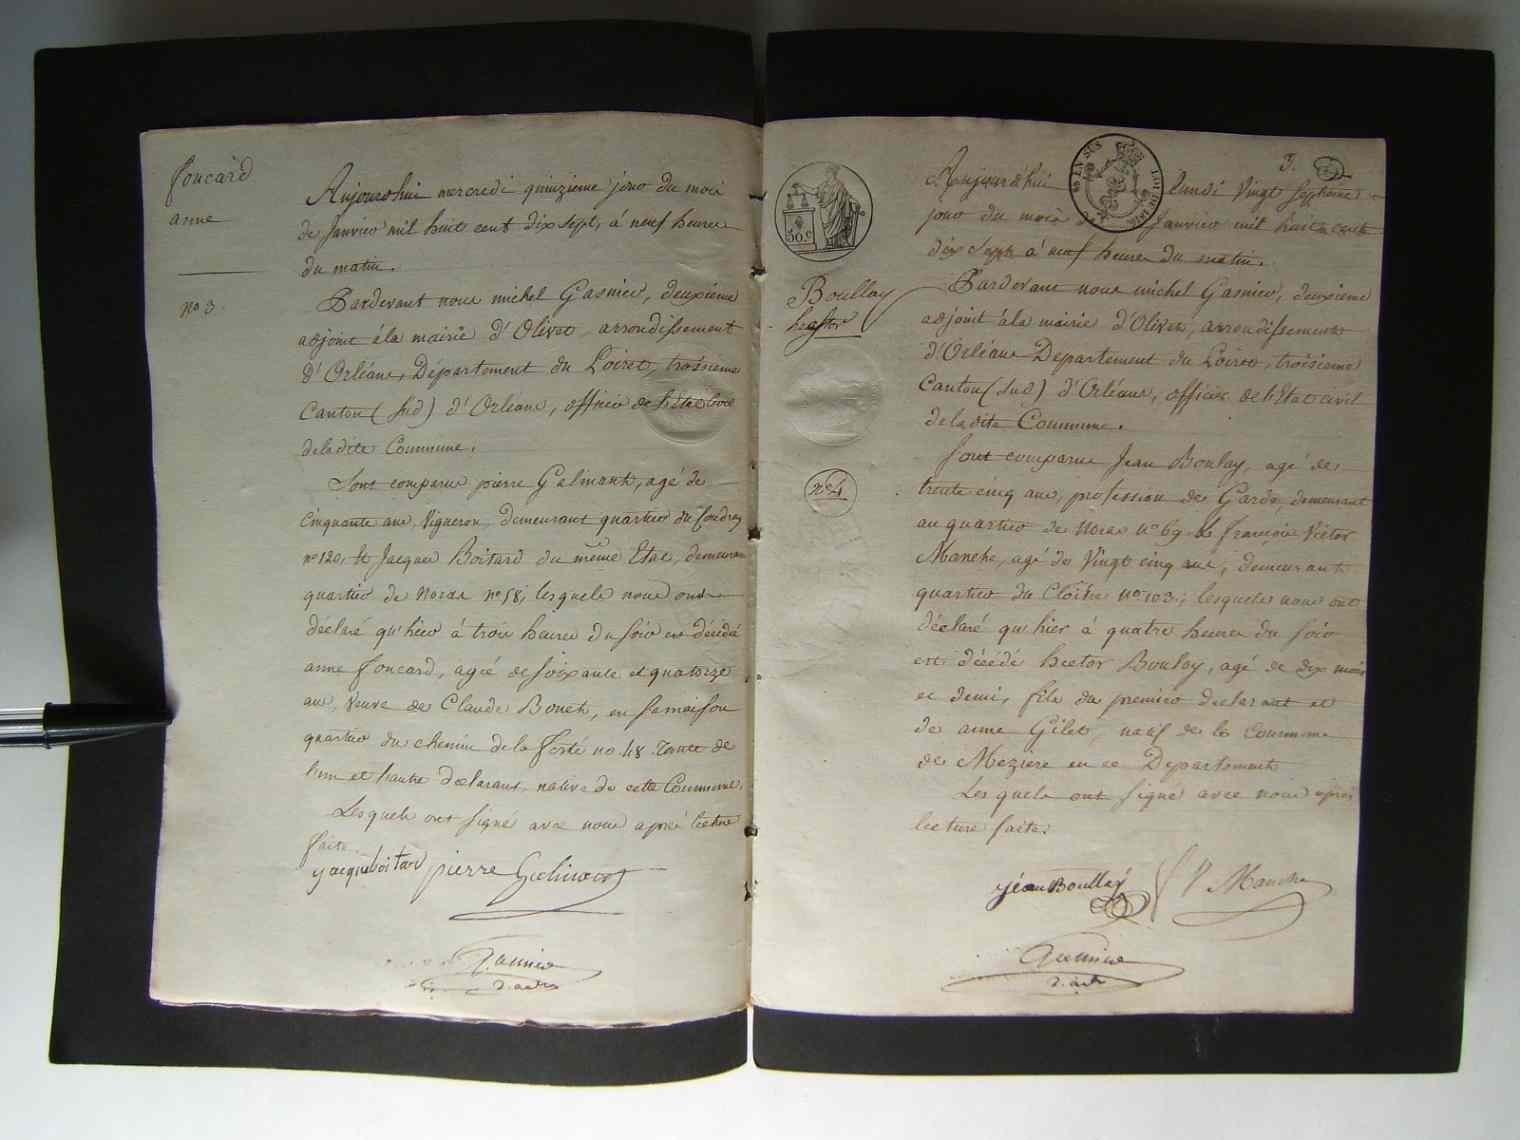 foucard
anne
no 3.
Aujourdhui mercredi quinzieme jour du mois
de Janvier mil huit cent dix sept, à neuf heures
du matin.
Pardevant nous michel Gasnier, deuxieme
adjoint à la mairie d'Olivet, arrondissement
d'Orléans, Département du Loiret, troisieme
Canton (sud) d'Orléans, officier de l'Etat Civil
de la dite Commune.
Sont comparus pierre Galmont, agé de
Cinquante ans, Vigneron, demeurant quartier du
no 120, et Jacques Boitard du même Etat, demeurant
quartier de Noras no 58, lesquels nous ont
déclaré qu'hier à trois heures du soir est décédé
anne foucard, agée de soixante et quatorze
ans, Veuve de Claude Bonet, en sa maison
quartier du chemin de la ferté no 48. Tante de
l'un et l'autre déclarant, native de cette Commune.
Lesquels ont signé avec nous après lecture
faite.
jacque boitard pierre
Gasnier
d. adj
3.
50.c
EN SUS
Aujourd'hui lundi Vingt septieme
jour du mois Janvier mil huit cent
dix sept à neuf heures du matin.
Boullay
hector
no 4
Pardevant nous michel Gasnier, deuxieme
adjoint à la mairie d'Olivet, arrondissement
d'Orléans Département du Loiret, troisieme
Canton (sud) d'Orléans, officier de l'Etat civil
de la dite Commune.
Sont comparus Jean Boulay, agé de
trente cinq ans, profession de Garde, demeurant
au quartier de Noras no 69. et françois Victor
Manche, agé de Vingt cinq ans, demeurant
quartier du Cloitre no 103, lesquels nous ont
déclaré qu'hier à quatre heures du soir
est décédé hector Boulay, agé de dix mois
et demi, fils du premier declarant et
de anne Gilet, natif de la Commune
de Meziere en ce Departement
Lesquels ont signé avec nous après
lecture faite.
jéan Boullay f V Manche
Gasnier
d. adj